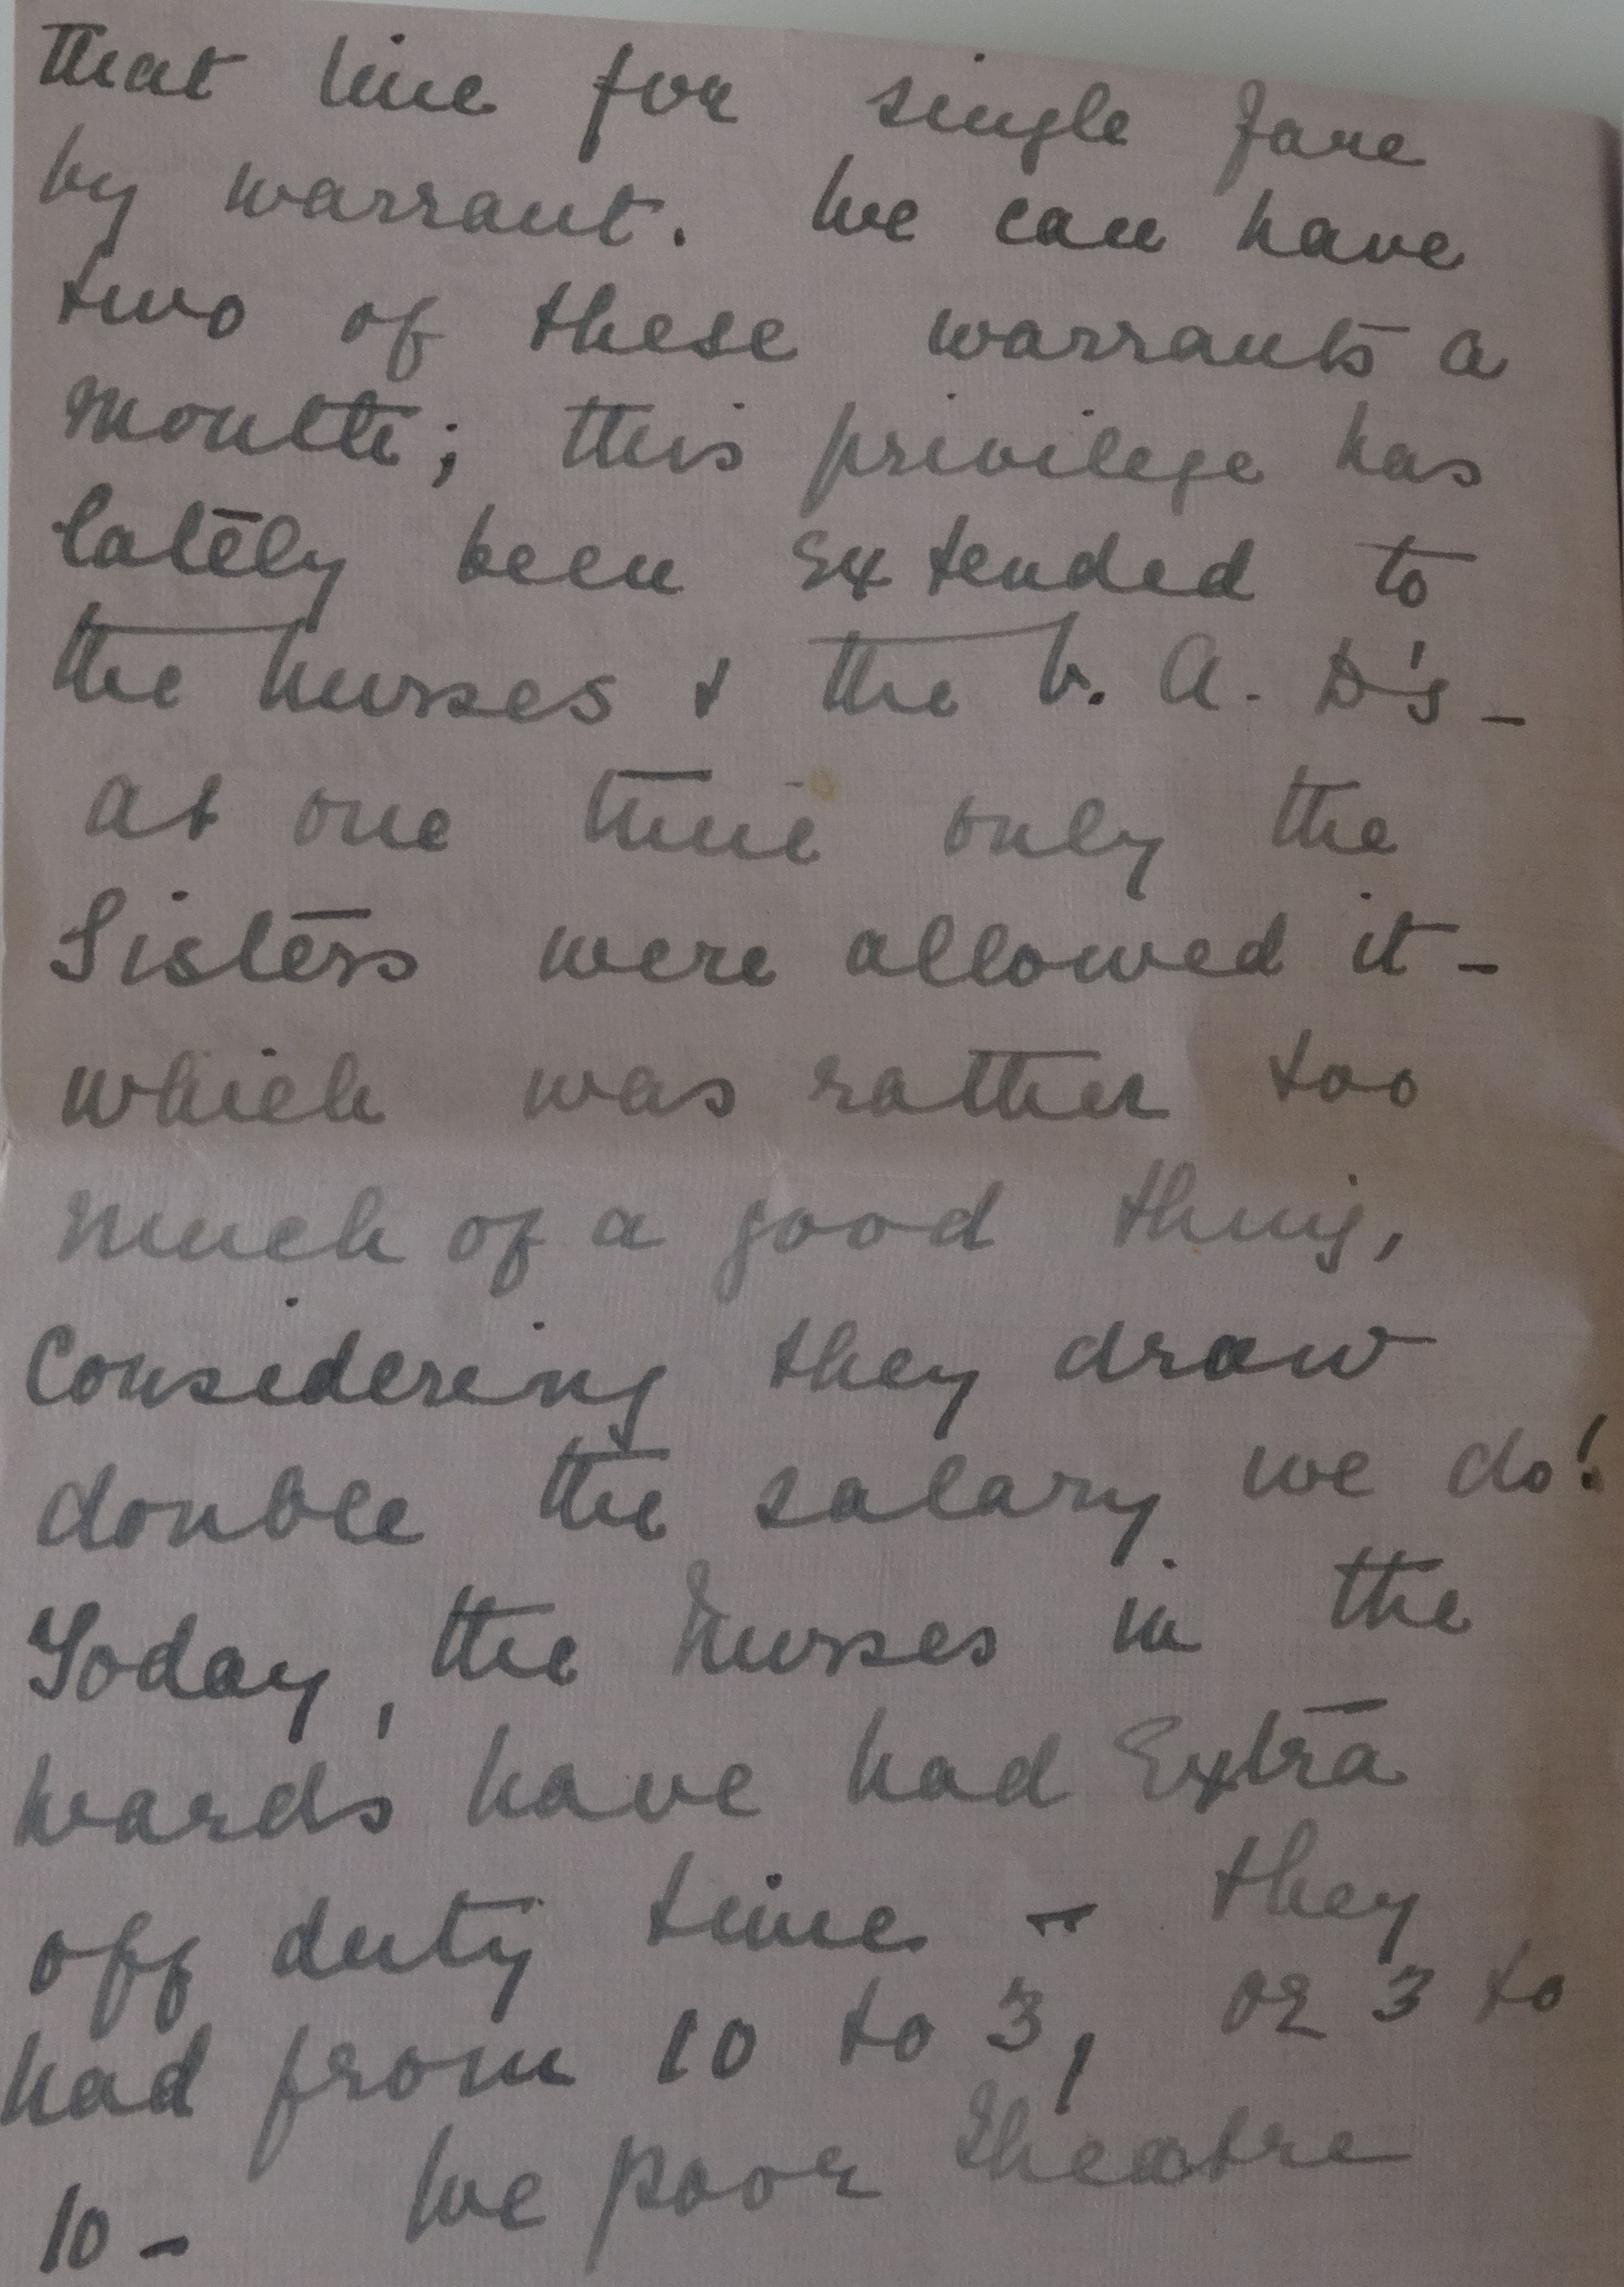 that line for single fare
by warrant. We can have
two of these warrants a
month; this privilege has
lately been extended to
the nurses & the V. A. D's -
at one time only the
Sisters were allowed it -
which was rather too
much of a good thing,
Considering they draw
double the salary we do!
Today, the nurses in the
wards have had Extra
off duty time - they
had from 10 to 3, or 3 to
10 - We poor theatre